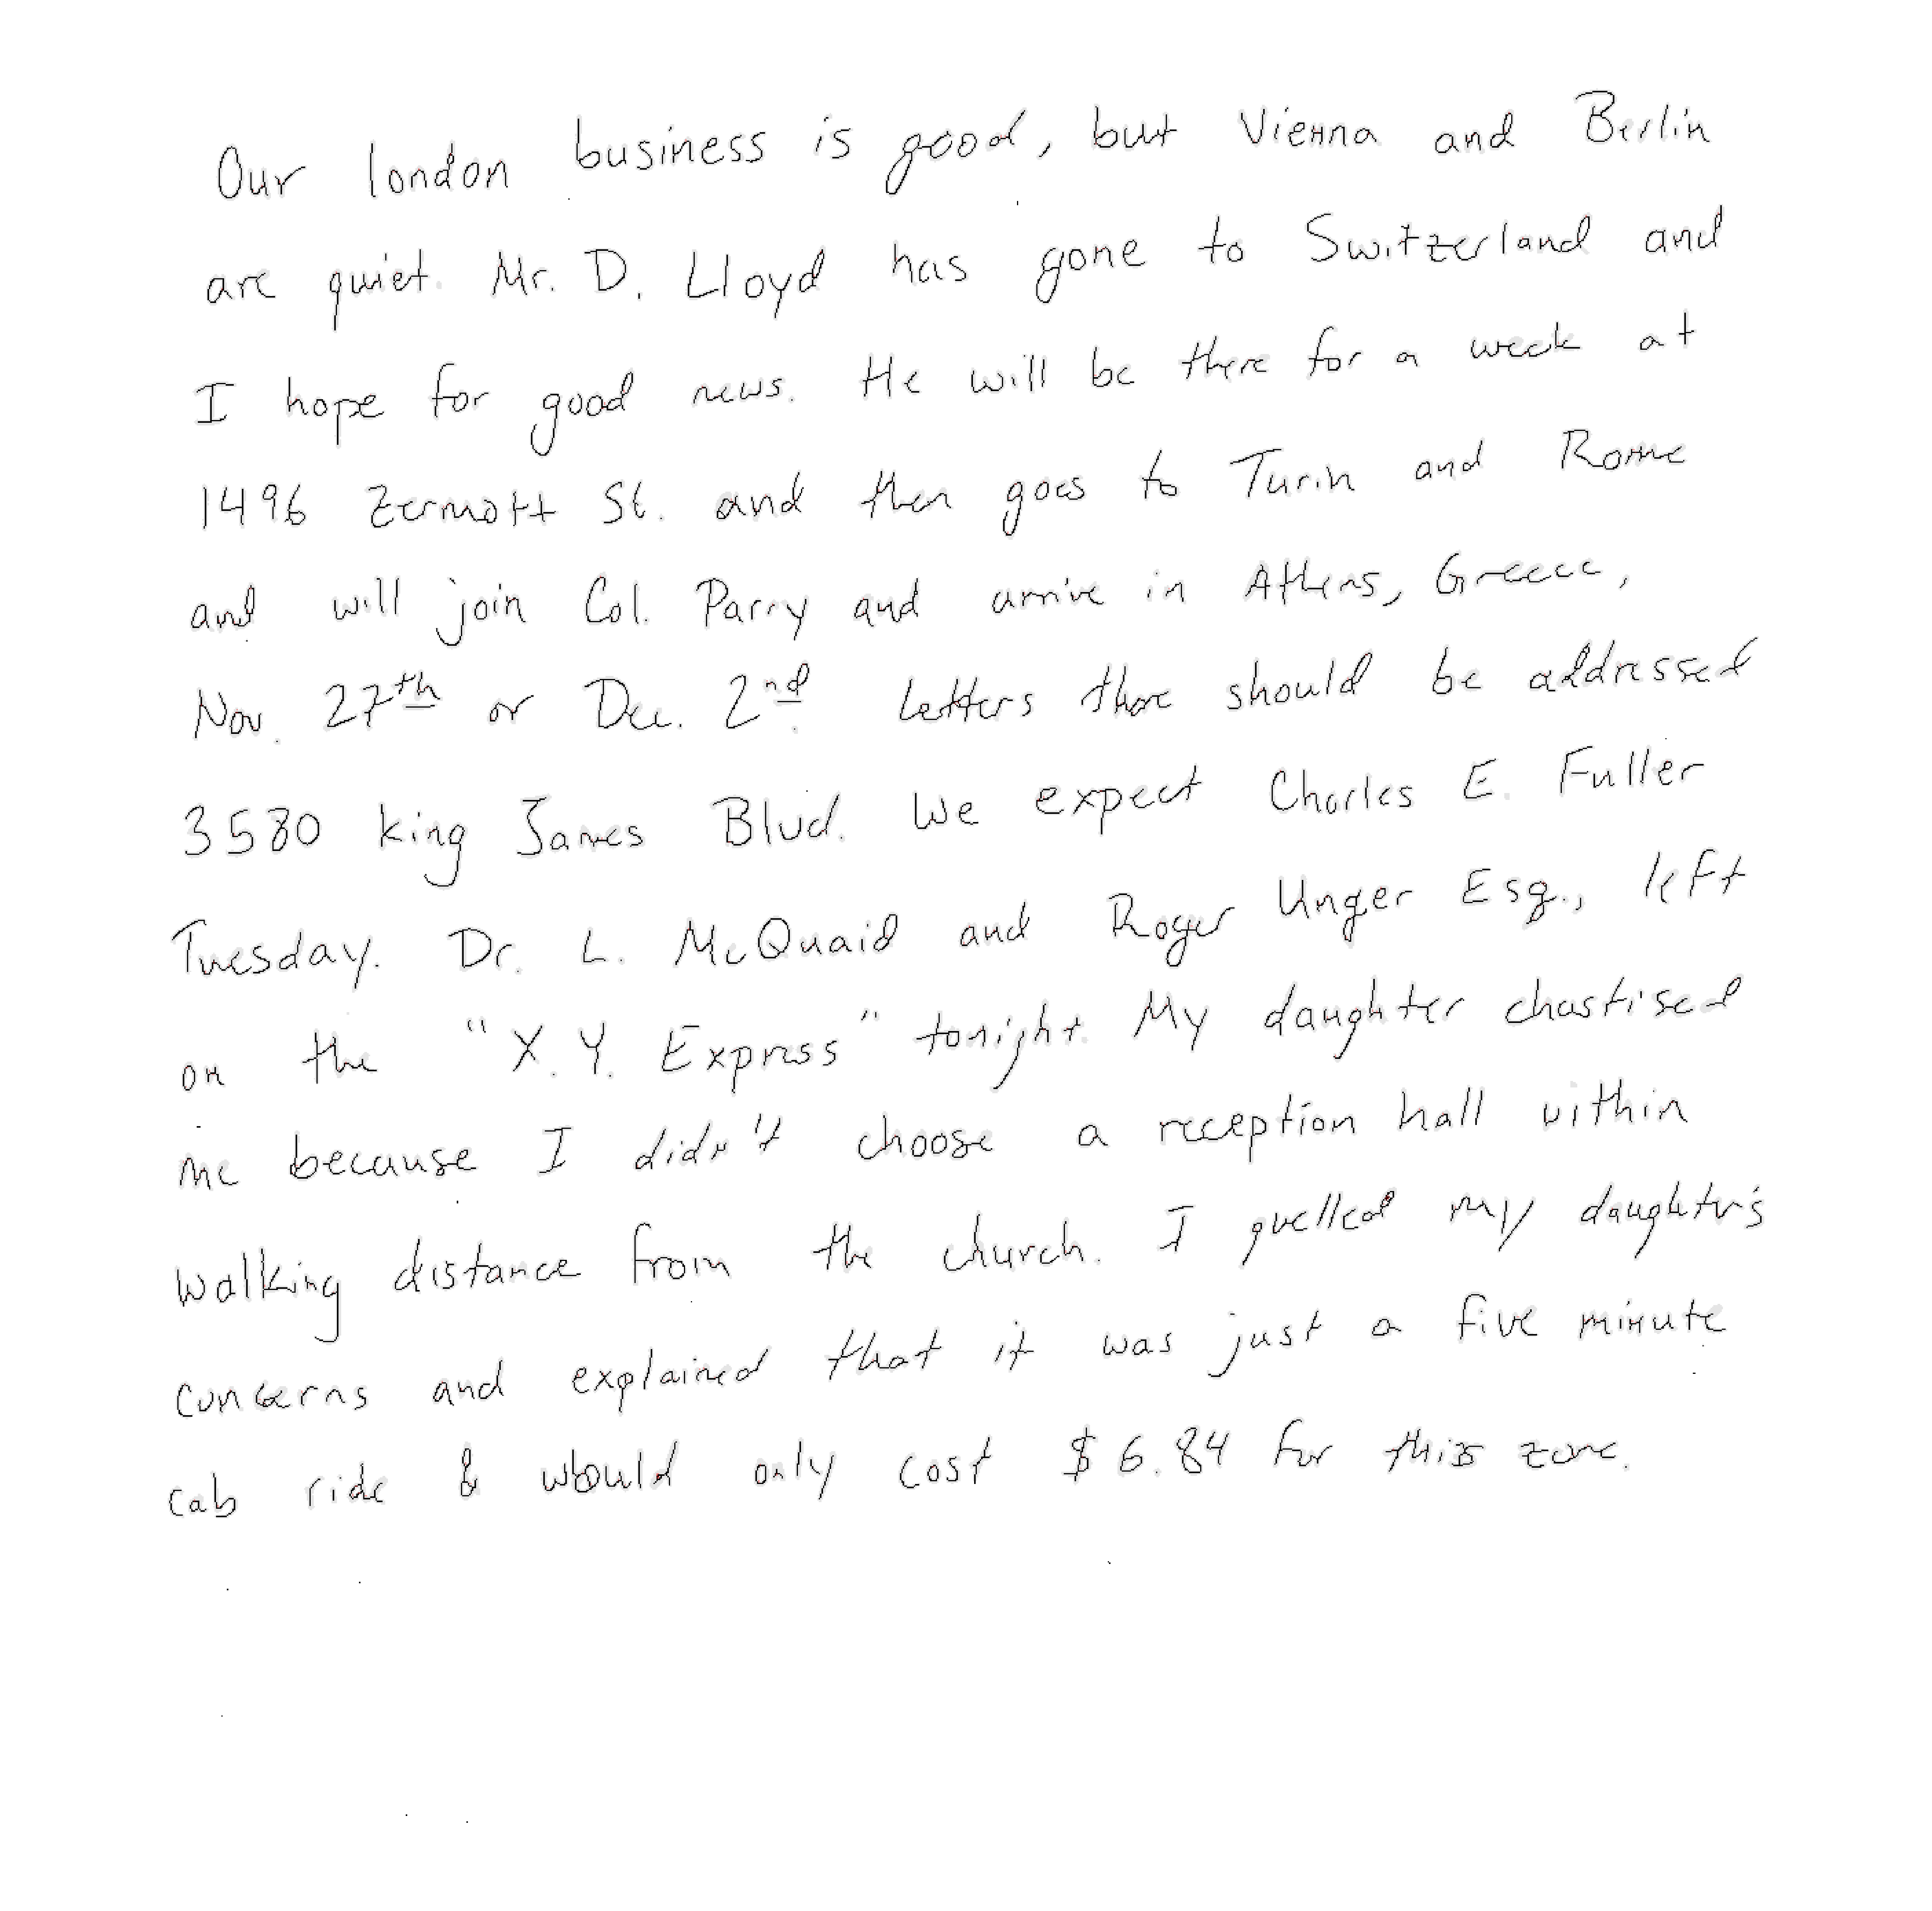 Our london business is good, but Vienna and Berlin
are quiet. Mr. D. Lloyd has gone to Switzerland and
I hope for good news. He will be there for a week at
1496 Zermott St. and then goes to Turin and Rome
and will join Col. Parry and arrive in Athens, Greece,
Nov. 27th or Dec. 2nd. Letters there should be addressed
3580 King James Blvd. We expect Charles E. Fuller
Tuesday. Dr. L. McQuaid and Roger Unger Esq., left
on the "X.Y. Express" tonight. My daughter chastised
me because I didn't choose a reception hall within
walking distance from the church. I quelled my daughter's
concerns and explained that it was just a five minute
cab ride & would only cost $6.84 for this zone.